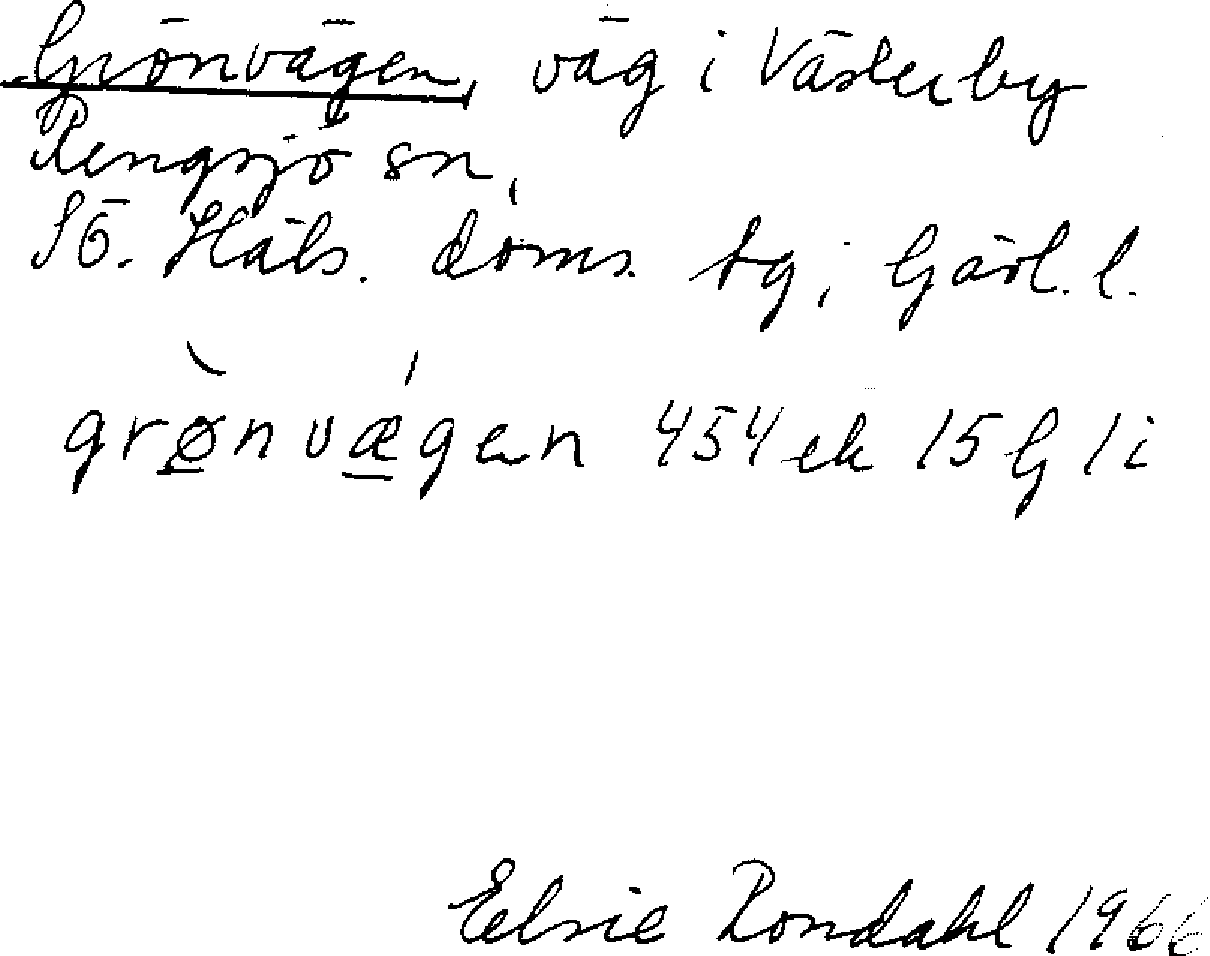 Grönvägen, väg i Västerby
Rengsjö sn,
SÖ. Häls. doms. tg, Gävl. l.
grø̀nvǽgen 454 ek 15 G 1 i
Elsie Rondahl 1966